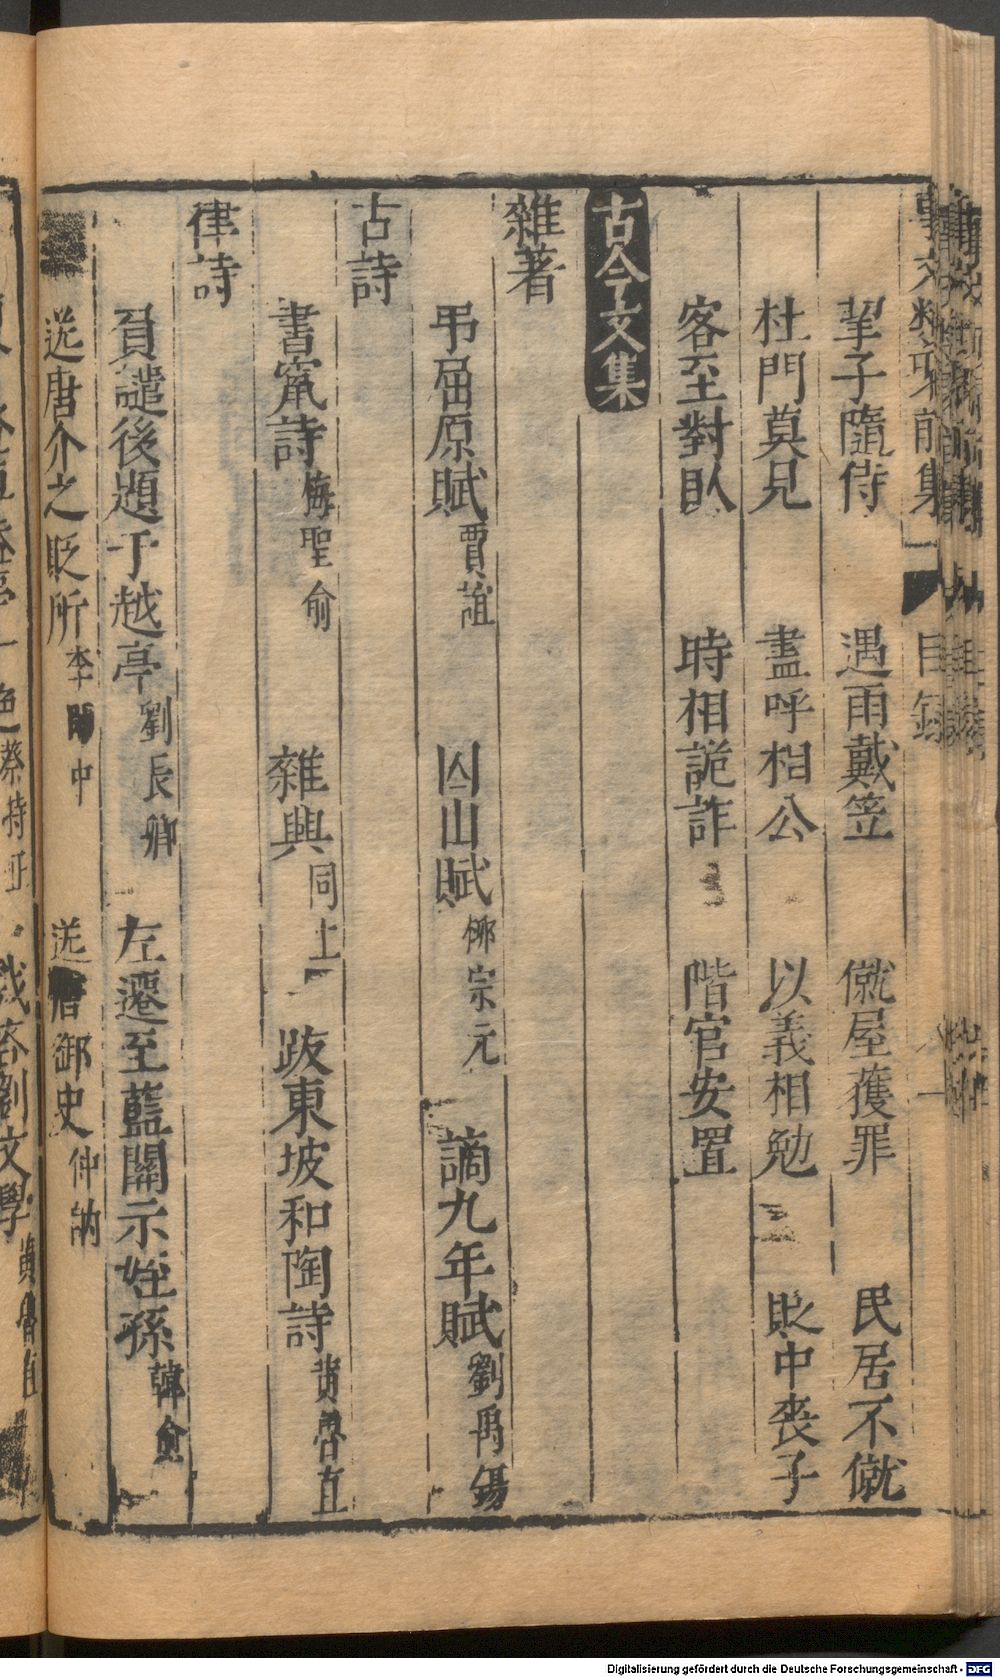 事文類聚前集 目錄
挈子隨侍 遇雨戴笠 僦屋獲罪 民居不僦
杜門莫見 盡呼相公 以義相勉 貶中喪子
客至對臥 時相詭詐 階官安置
古今文集
雜著
弔屈原賦 賈誼 囚山賦 柳宗元 謫九年賦 劉禹錫
古詩
書竄詩 梅聖俞 雜興 同上 跋東坡和陶詩 黃魯直
律詩
負譴後題于越亭 劉長卿 左遷至藍關示姪孫 韓愈
送唐介之貶所 李師中 送唐御史 仲訥
絕 蔡持正 戲答劉文學 黃魯直
Digitalisierung gefördert durch die Deutsche Forschungsgemeinschaft - DFG